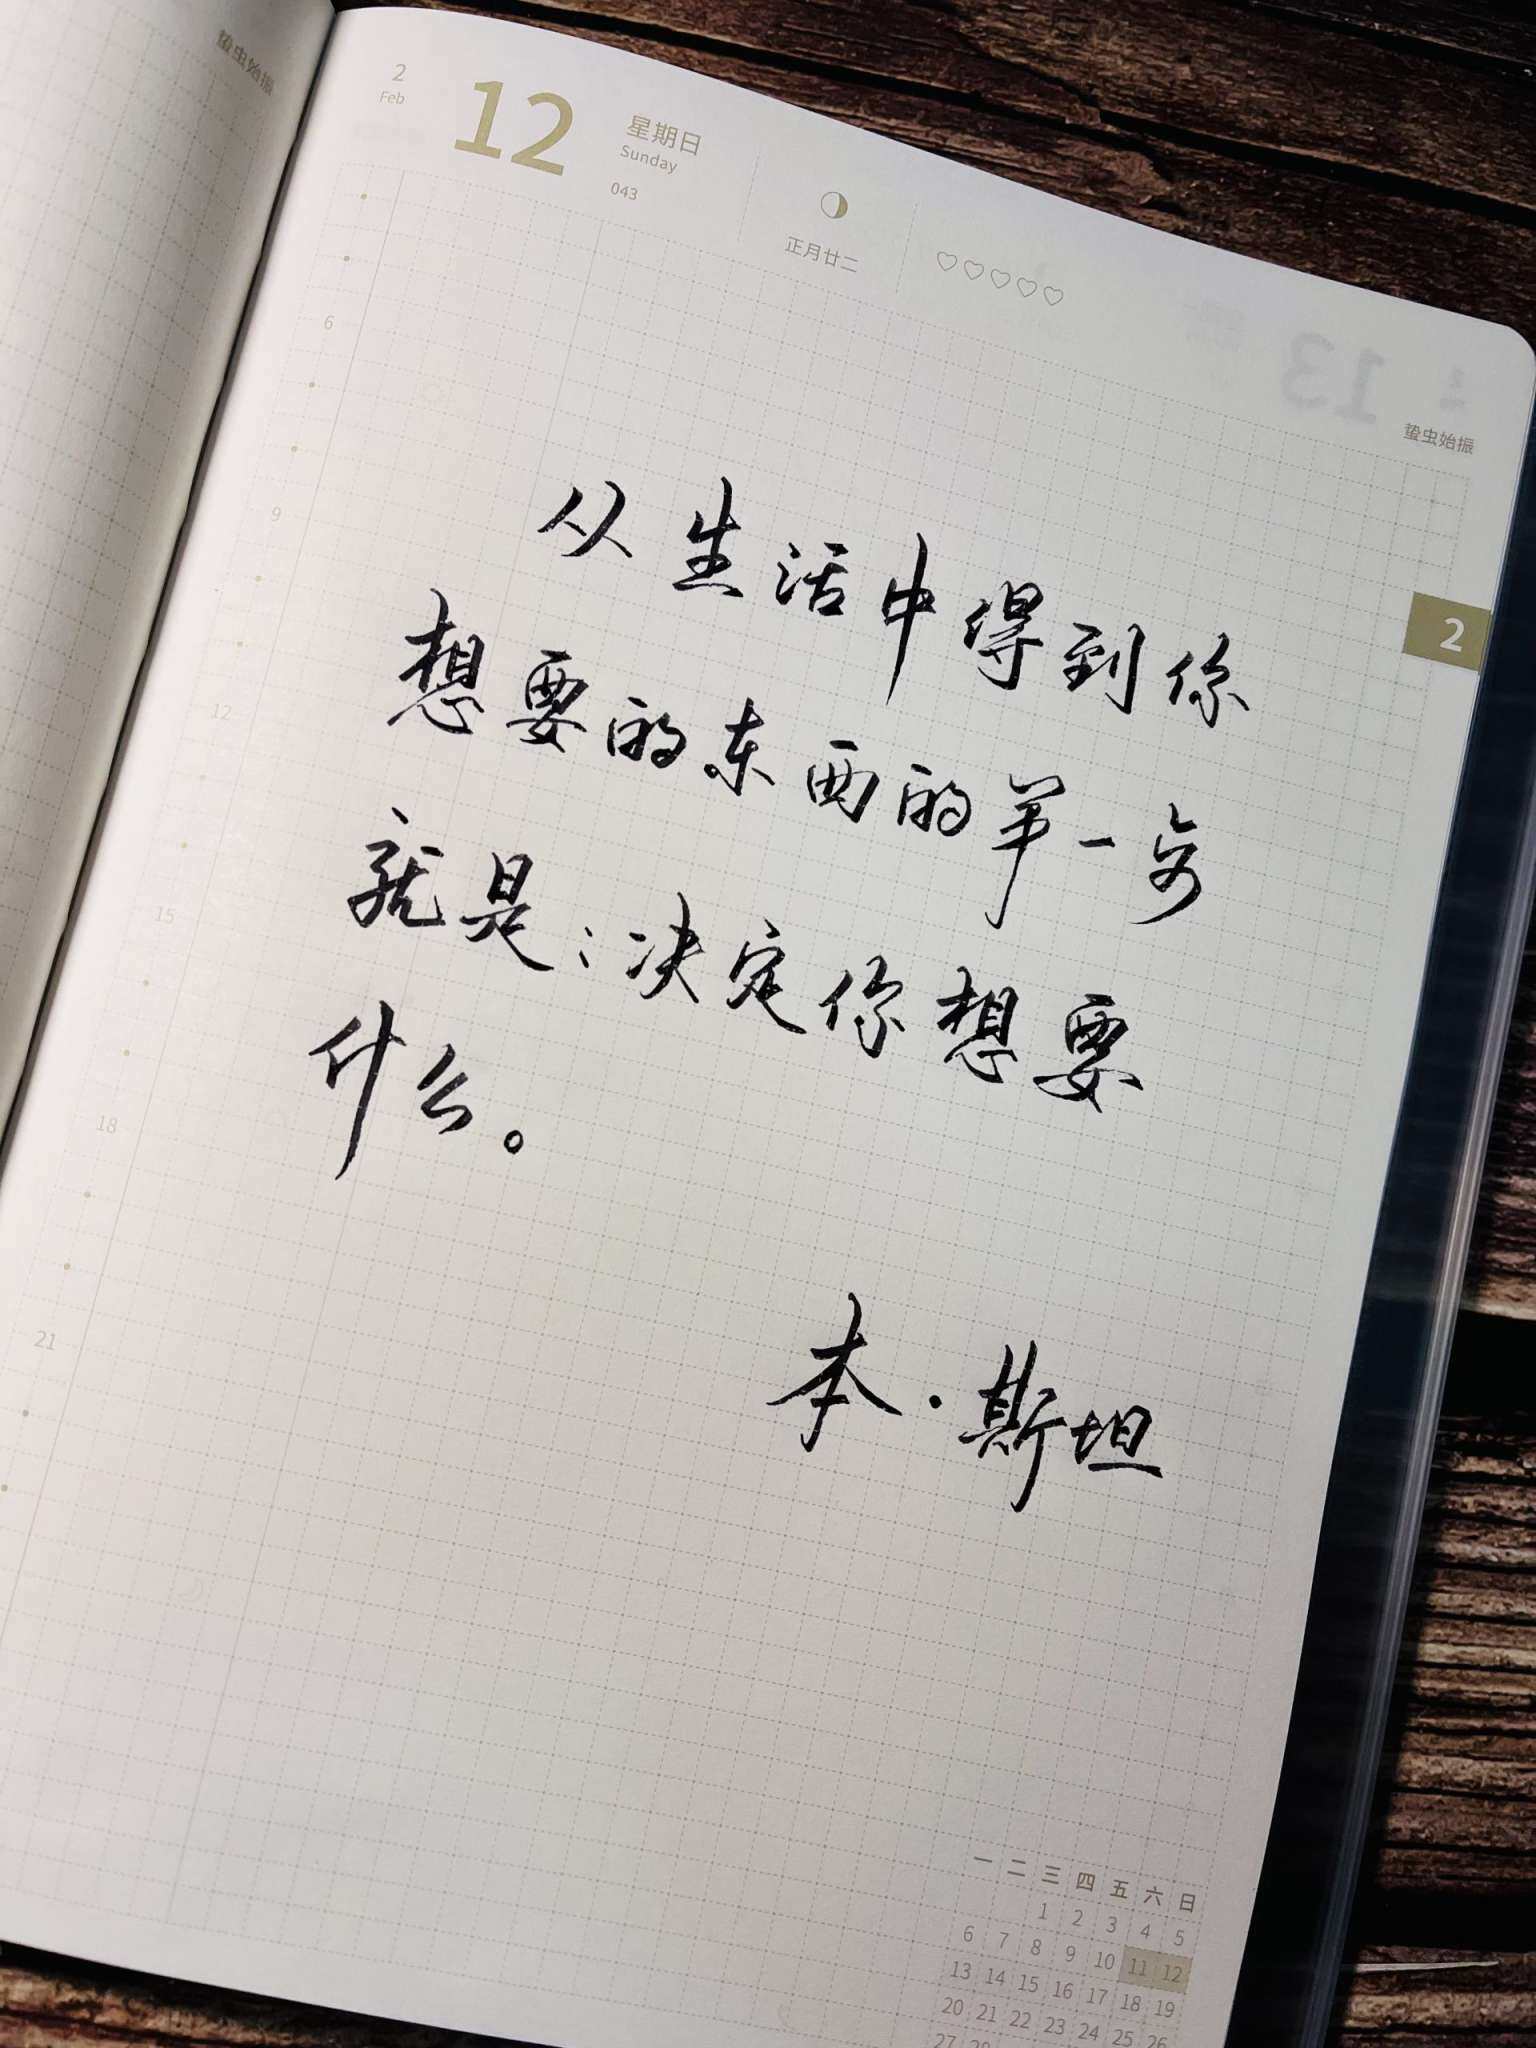 蛰虫始振
2
Feb
12
星期日
Sunday
043
正月廿二
13
蛰虫始振
2
6
9
12
15
18
21
从生活中得到你
想要的东西的第一步
就是：决定你想要
什么。
本·斯坦
一 二 三 四 五 六 日
1 2 3 4 5
6 7 8 9 10 11 12
13 14 15 16 17 18 19
20 21 22 23 24 25 26
27 28